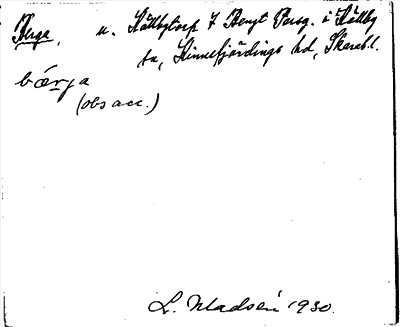 Berga, u. Hällbytorp 7 Bengt Persg. i Hällby
sn, Kinnefjärdings hd, Skarab.l.
bærja
(obs acc.)
L. Madsén 1930.